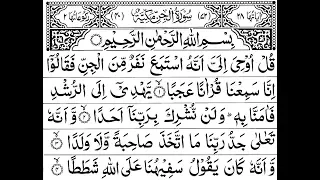 اٰیاتُهَا ٢٨ (٧٢) سُوْرَةُ الْجِنِّ مَكِّیَّةٌ (٤٠) رُكُوْعَاتُهَا ٢
بِسْمِ اللّٰهِ الرَّحْمٰنِ الرَّحِیْمِ
قُلْ اُوْحِیَ اِلَیَّ اَنَّهُ اسْتَمَعَ نَفَرٌ مِّنَ الْجِنِّ فَقَالُوْۤا
اِنَّا سَمِعْنَا قُرْاٰنًا عَجَبًا ۙ یَّهْدِیْۤ اِلَی الرُّشْدِ
فَاٰمَنَّا بِهٖ ؕ وَلَنْ نُّشْرِكَ بِرَبِّنَاۤ اَحَدًا ۙ وَّاَنَّهٗ
تَعٰلٰی جَدُّ رَبِّنَا مَا اتَّخَذَ صَاحِبَةً وَّلَا وَلَدًا ۙ
وَّاَنَّهٗ كَانَ یَقُوْلُ سَفِیْهُنَا عَلَی اللّٰهِ شَطَطًا ۙ